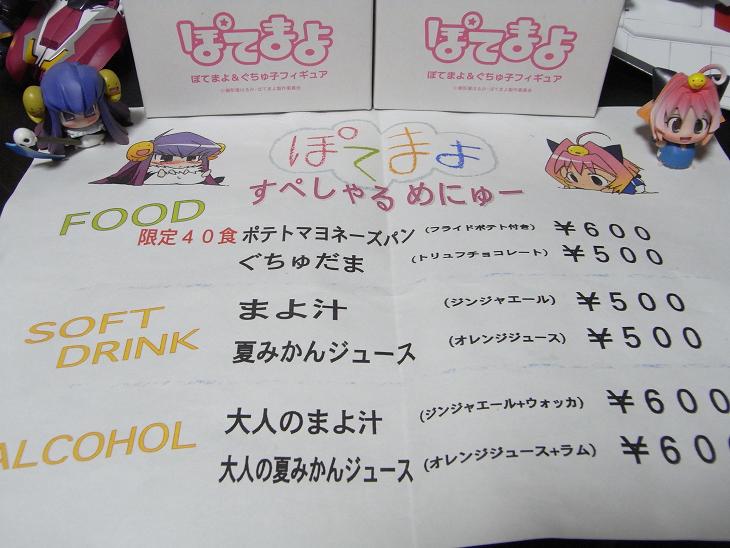 ぽてまよ
ぽてまよ＆ぐちゅ子フィギュア
ぽてまよ
ぽてまよ＆ぐちゅ子フィギュア
ぽてまよ
すぺしゃる めにゅー
FOOD
限定４０食 ポテトマヨネーズパン (フライドポテト付き) ￥６００
ぐちゅだま (トリュフチョコレート) ￥５００
SOFT DRINK
まよ汁 (ジンジャエール) ￥５００
夏みかんジュース (オレンジジュース) ￥５００
ALCOHOL
大人のまよ汁 (ジンジャエール+ウォッカ) ￥６００
大人の夏みかんジュース (オレンジジュース+ラム) ￥６００